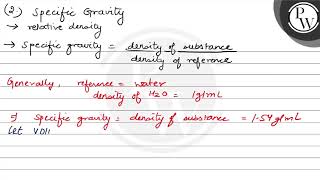 (2.) Specific Gravity
→ relative density
→ Specific gravity = density of substance
density of reference
Generally, reference = water
density of H2O = 1g/mL
If Specific gravity = density of substance = 1.54 g/mL
Let
PW